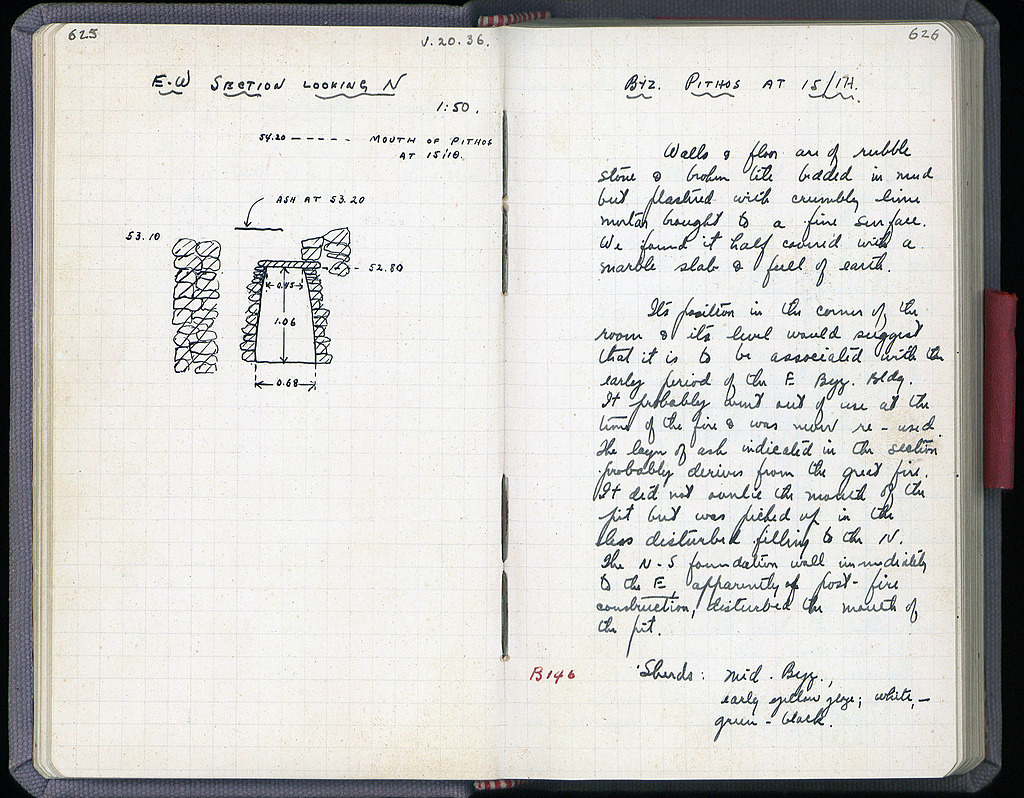 625
V. 20. 36.
E-W SECTION LOOKING N
1:50.
54.20 - - - - - MOUTH OF PITHOS
AT 15/1Θ.
ASH AT 53.20
53.10
52.80
0.45
1.06
0.68
626
BYZ. PITHOS AT 15/ΙΗ.
Walls & floor are of rubble
stone & broken tile bedded in mud
but plastered with crumbly lime
mortar brought to a fine surface.
We found it half covered with a
marble slab & full of earth.
Its position in the corner of the
room & its level would suggest
that it is to be associated with the
early period of the E Byz. Bldg.
It probably went out of use at the
time of the fire & was never re-used.
The layer of ash indicated in the section
probably derives from the great fire.
It did not overlie the mouth of the
pit but was picked up in the
less disturbed filling to the N.
The N-S foundation wall immediately
to the E, apparently of post-fire
construction, disturbed the mouth of
the pit.
B146
Sherds: mid. Byz.,
early yellow glaze; white, –
green - black.